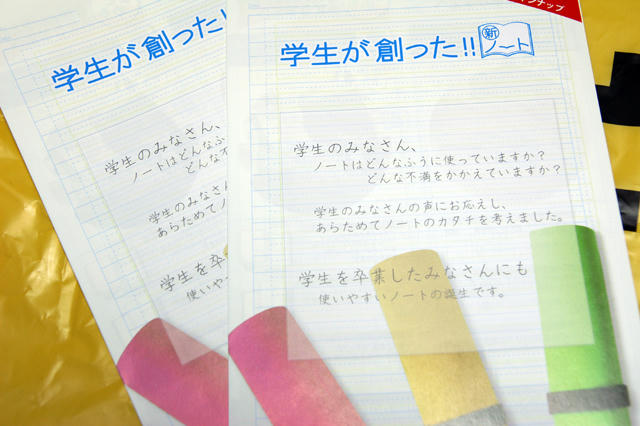 学生が創った!!
学生のみなさん、
ノートはどんなふ
どんな不
学生のみなさん
あらためてノ
学生を卒
使いや
インナップ
学生が創った!!
新
ノート
学生のみなさん、
ノートはどんなふうに使っていますか?
どんな不満をかかえていますか?
学生のみなさんの声にお応えし、
あらためてノートのカタチを考えました。
学生を卒業したみなさんにも
使いやすいノートの誕生です。